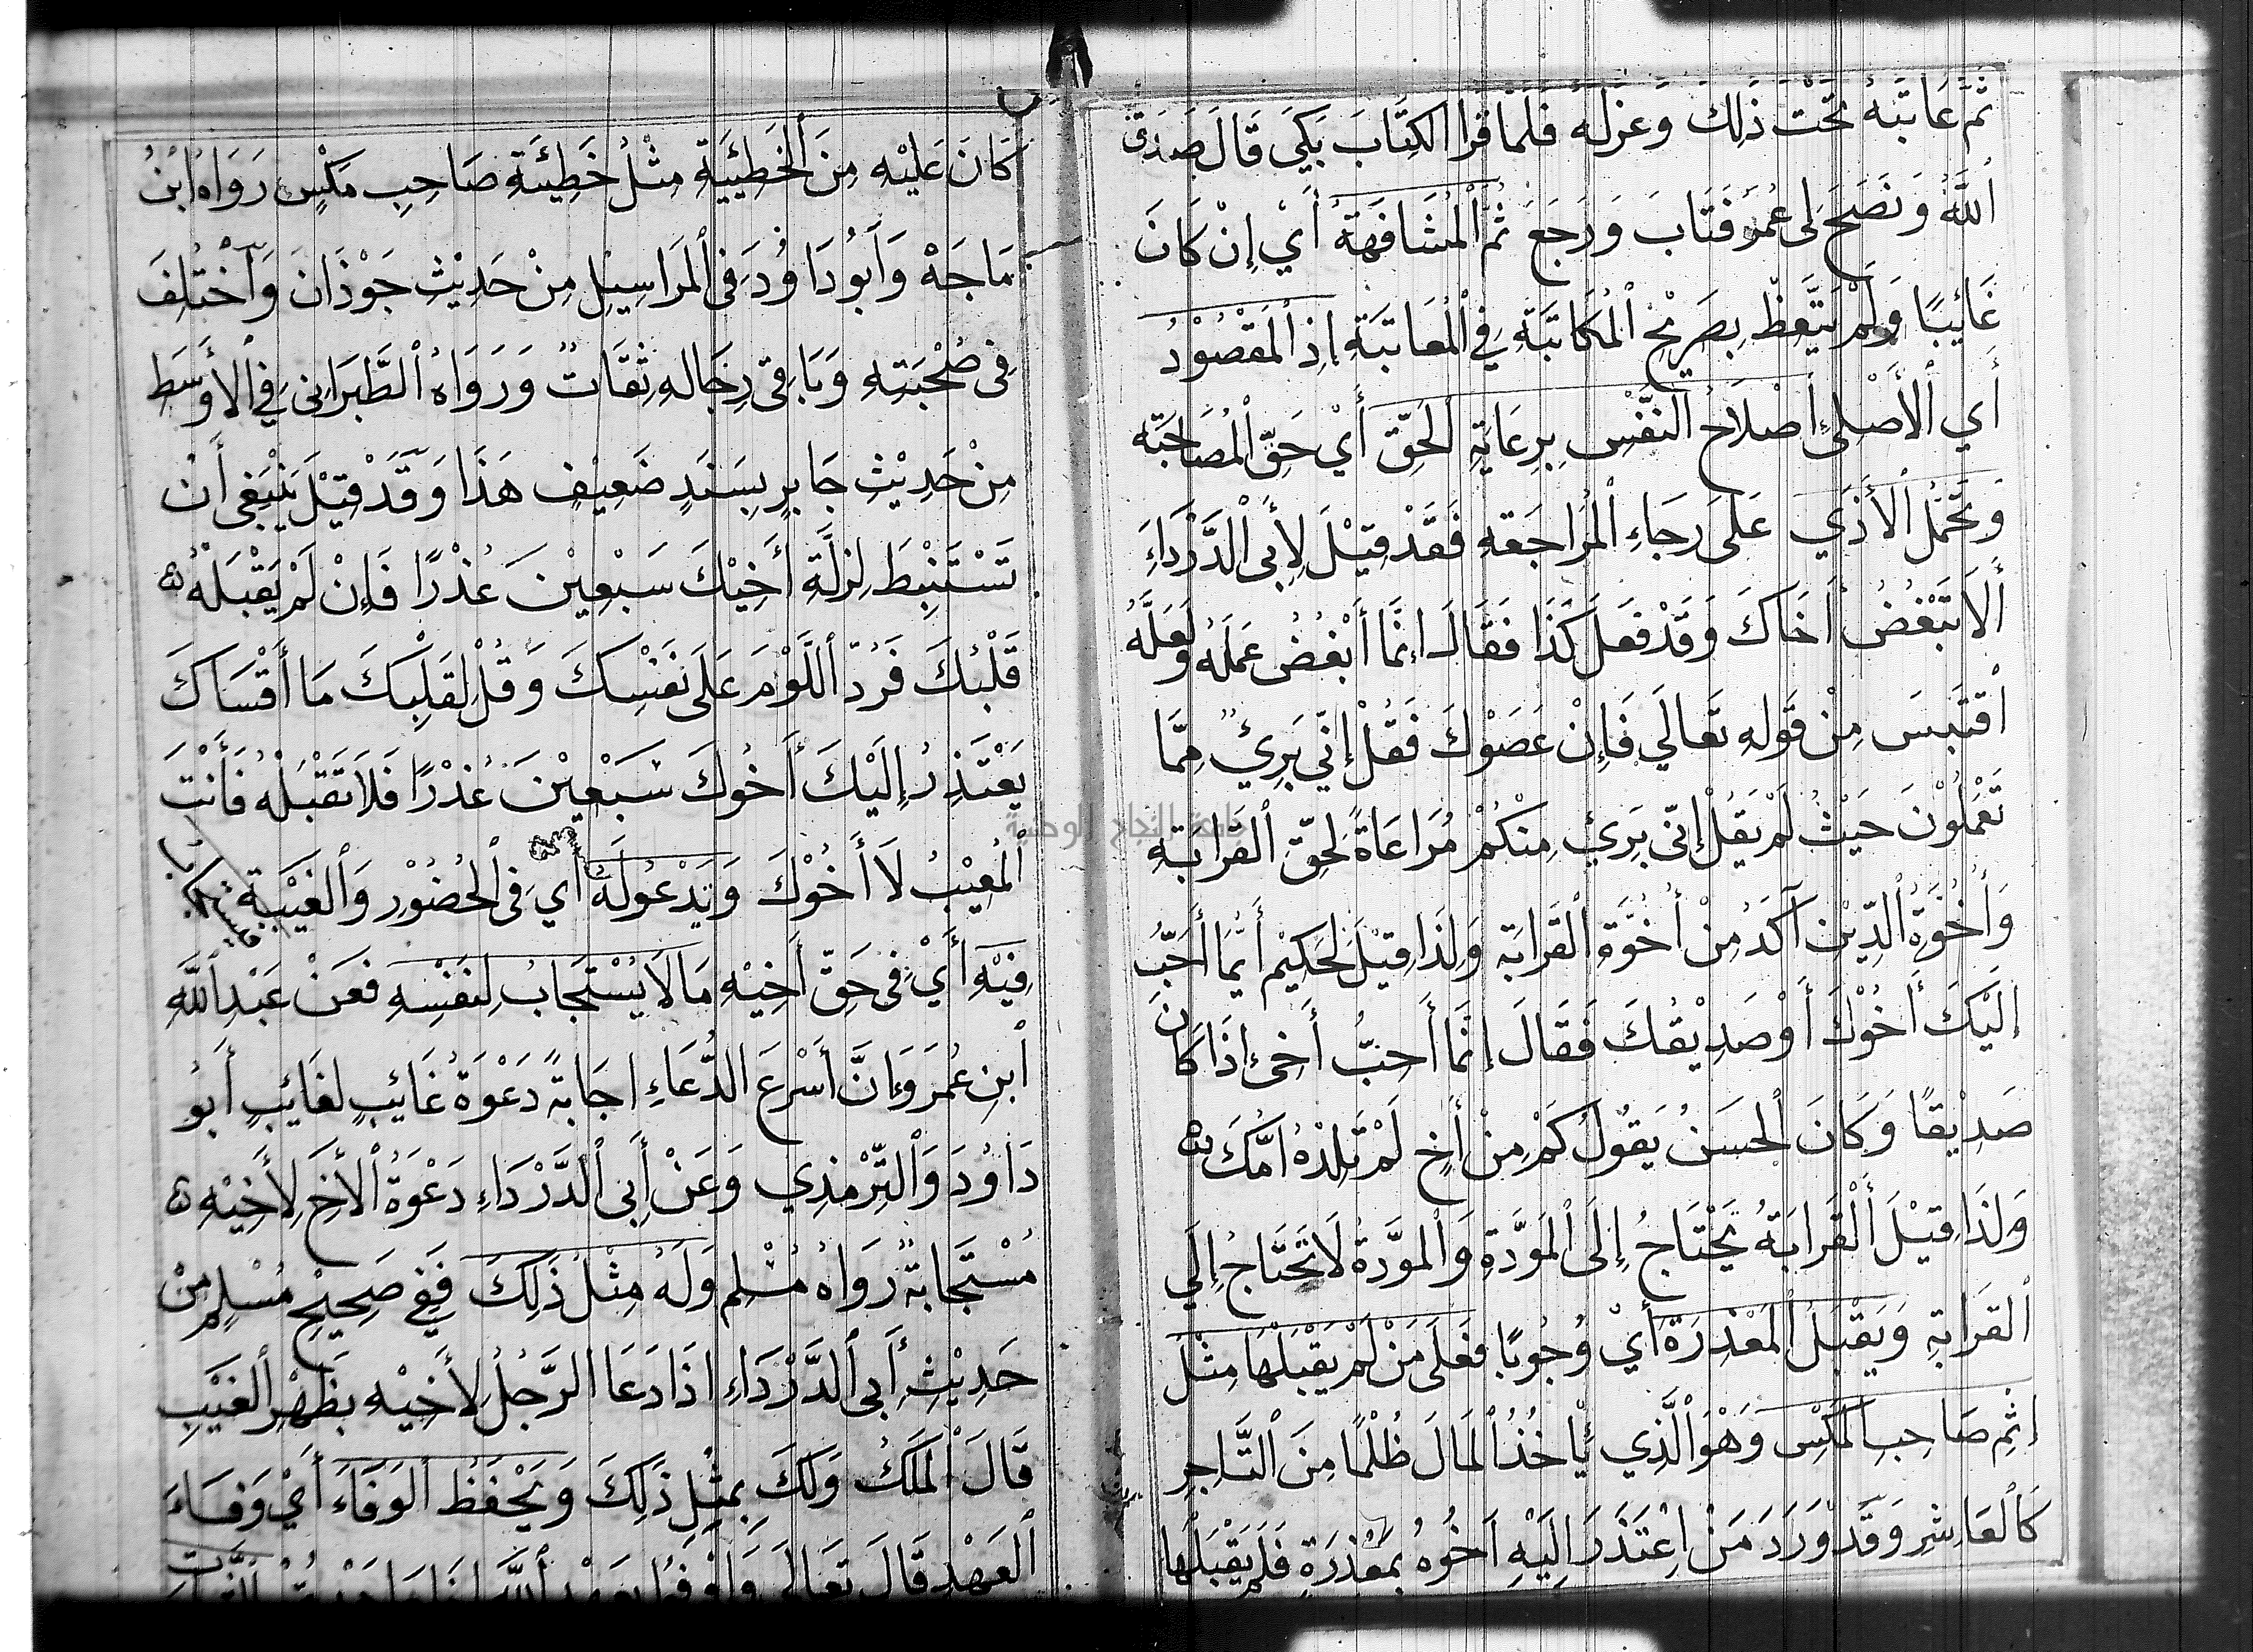 ثُمَّ عَاتَبَهُ تَحْتَ ذَلِكَ وَعَزَلَهُ فَلَمَّا قَرَا الكِتَابَ بَكَي قَالَ صَدَقَ
اللَّهُ وَنَصَحَ لِى عُمَرُ فَتَابَ وَرَجَعَ ثُمَّ الْمُشَافَهَةُ أَيْ إِنْ كَانَ
غَائِبًا وَلَمْ يَتَّعِظْ بِصَرِيْحِ الْمُكَاتَبَةِ فِي الْمُعَاتَبَةِ إِذِ الْمَقْصُوْدُ
أَي الْأَصْلِىُ إصْلَاحُ النَّفْسِ بِرِعَايَةِ الحَقِّ أَيْ حَقِّ الْمُصَاحَبَة
وَتَحَمُّلُ الْأَذَي عَلَى رَجَاءِ الْمُرَاجَعَةِ فَقَدْ قِيْلَ لِأَبِى الدَّرْدَاءِ
أَلَا تَبْغُضُ أَخَاكَ وَقَدْ فَعَلَ كَذَا فَقَالَ إِنَّمَا أَبْغُضُ عَمَلَهُ وَلَعَلَّهُ
اقْتَبَسَ مِنْ قَوْلِهِ تَعَالَي فَإِنْ عَصَوْكَ فَقُلْ إِنِّي بَرِيْءٌ مِمَّا
تَعْمَلُوْنَ حَيْثُ لَمْ يَقُلْ إِنِّى بَرِيْءٌ مِنْكُمْ مُرَاعَاةً لِحَقِّ الْقَرَابَةِ
وَأُخُوَّةُ الدِّيْنِ آكَدُ مِنْ أُخُوَّةِ الْقَرَابَةِ وَلِذَا قِيْلَ لِحَكِيْمٍ أَيُّمَا أَحَبُّ
إِلَيْكَ أَخُوْكَ أَوْ صَدِيْقُكَ فَقَالَ إِنَّمَا أُحِبُّ أَخِى إِذَا كَانَ
صَدِيْقًا وَكَانَ الْحَسَنُ يَقُوْلُ كَمْ مِنْ أَخٍ لَمْ تَلِدْهُ اُمُّكَ
وَلِذَا قِيْلَ أَلْقَرَابَةُ يَحْتَاجُ إِلَى الْمَوَدَّةِ وَالْمَوَدَّةُ لَا تَحْتَاجُ إِلَي
الْقَرَابَةِ وَيَقْبَلُ الْمَعْذِرَةَ أَيْ وُجُوْبًا فَعَلَى مَنْ لَمْ يَقْبَلْهَا مِثْلُ
إِثْمِ صَاحِبِ الْمَكْسِ وَهُوَ الَّذِي يَأْخُذُ الْمَالَ ظُلْمًا مِنَ التَّاجِرِ
كَالْعَاشِرِ وَقَدْ وَرَدَ مَنْ اِعْتَذَرَ إِلَيْهِ اَخُوهُ بِمَعْذِرَةٍ فَلَمْ يَقْبَلْهَا
كَانَ عَلَيْهِ مِنَ الْخَطِيْئَةِ مِثْلُ خَطِيْئَةِ صَاحِبِ مَكْسٍ رَوَاهُ ابْنُ
مَاجَهْ وَأَبُو دَاوُدَ فِى الْمَرَاسِيْلِ مِنْ حَدِيْثِ جَوْذَانَ وَاخْتُلِفَ
فِى صُحْبَتِهِ وَبَاقِى رِجَالِهِ ثِقَاتٌ وَرَوَاهُ الطَّبَرَانِى فِي الْأَوْسَطِ
مِنْ حَدِيْثِ جَابِرٍ بِسَنَدٍ ضَعِيْفٍ هَذَا وَقَدْ قِيْلَ يَنْبَغِى أَنْ
تَسْتَنْبِطَ لِزَلَّةِ أَخِيْكَ سَبْعِيْنَ عُذْرًا فَإِنْ لَمْ يَقْبَلْهُ
قَلْبُكَ فَرُدَّ اللَّوْمَ عَلَى نَفْسِكَ وَقُلْ لِقَلْبِكَ مَا أَقْسَاكَ
يَعْتَذِرُ إِلَيْكَ أَخُوكَ سَبْعِيْنَ عُذْرًا فَلَا تَقْبَلُهُ فَأَنْتَ
الْمُعِيْبُ لَا أَخُوْكَ وَيَدْعُو لَهُ أَي فِى الْحُضُوْرِ وَالْغَيْبَةِ
فِيْهِ أَيْ فِى حَقِّ أَخِيْهِ مَا لَا يُسْتَجَابُ لِنَفْسِهِ فَعَنْ عَبْدِ اللَّهِ
ابْنِ عُمَرَ وَإِنَّ أَسْرَعَ الدُّعَاءِ اجَابَةً دَعْوَةُ غَائِبٍ لِغَائِبٍ أَبُو
دَاوُدَ وَالتِّرْمِذِي وَعَنْ أَبِى الدَّرْدَاءِ دَعْوَةُ الْأَخِ لِأَخِيْهِ
مُسْتَجَابَةٌ رَوَاهُ مُسْلِم وَلَهُ مِثْلُ ذَلِكَ فَفِي صَحِيْحِ مُسْلِمٍ مِنْ
حَدِيْثِ أَبِى الدَّرْدَاءِ اذَا دَعَا الرَّجُلُ لِأَخِيْهِ بِظَهْرِ الْغَيْبِ
قَالَ الْمَلَكُ وَلَكَ بِمِثْلِ ذَلِكَ وَيَحْفَظُ الْوَفَاءَ أَيْ وَفَاءَ
الْعَهْدِ قَالَ تَعَالَى وَأَوْفُوا بِعَهْدِ اللَّهِ
جامعة النجاح الوطنية